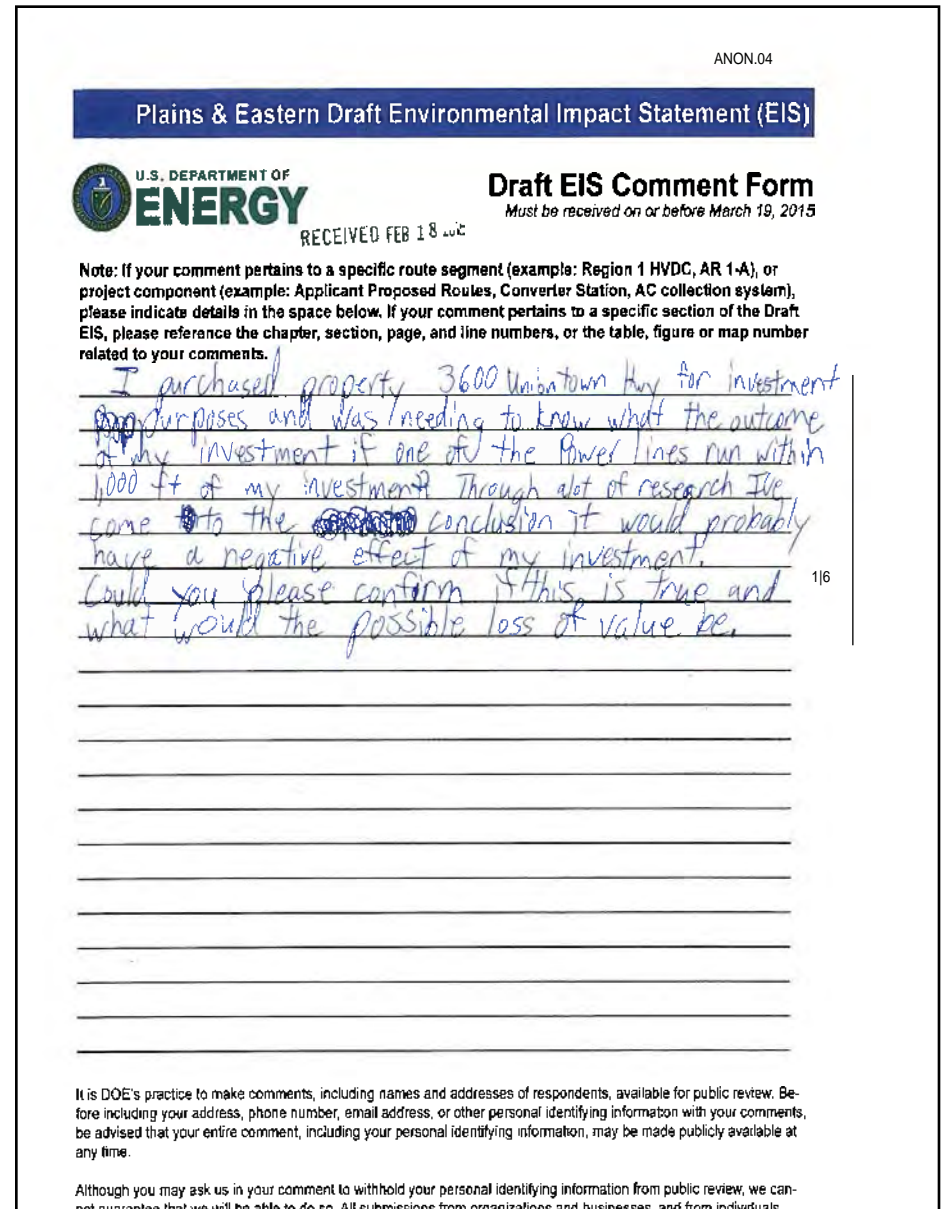 ANON.04
Plains & Eastern Draft Environmental Impact Statement (EIS)
U.S. DEPARTMENT OF
ENERGY
Draft EIS Comment Form
Must be received on or before March 19, 2015
RECEIVED FEB 18
Note: If your comment pertains to a specific route segment (example: Region 1 HVDC, AR 1-A), or
project component (example: Applicant Proposed Routes, Converter Station, AC collection system),
please indicate details in the space below. If your comment pertains to a specific section of the Draft
EIS, please reference the chapter, section, page, and line numbers, or the table, figure or map number
related to your comments.
I purchased property 3600 Uniontown Hwy for investment
purposes and was needing to know what the outcome
of my investment if one of the Power lines run within
1,000 ft of my investment? Through alot of research I've
come to the conclusion it would probably
have a negative effect of my investment.
Could you please confirm if this is true and
1|6
what would the possible loss of value be.
It is DOE's practice to make comments, including names and addresses of respondents, available for public review. Be-
fore including your address, phone number, email address, or other personal identifying information with your comments,
be advised that your entire comment, including your personal identifying information, may be made publicly available at
any time.
Although you may ask us in your comment to withhold your personal identifying information from public review, we can-
not guarantee that we will be able to do so. All submissions from organizations and businesses, and from individuals